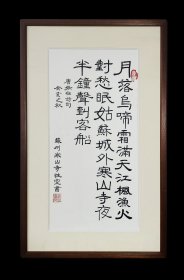 月落烏啼霜滿天江楓漁火
對愁眠姑蘇城外寒山寺夜
半鐘聲到客船
蘇州寒山寺性空書